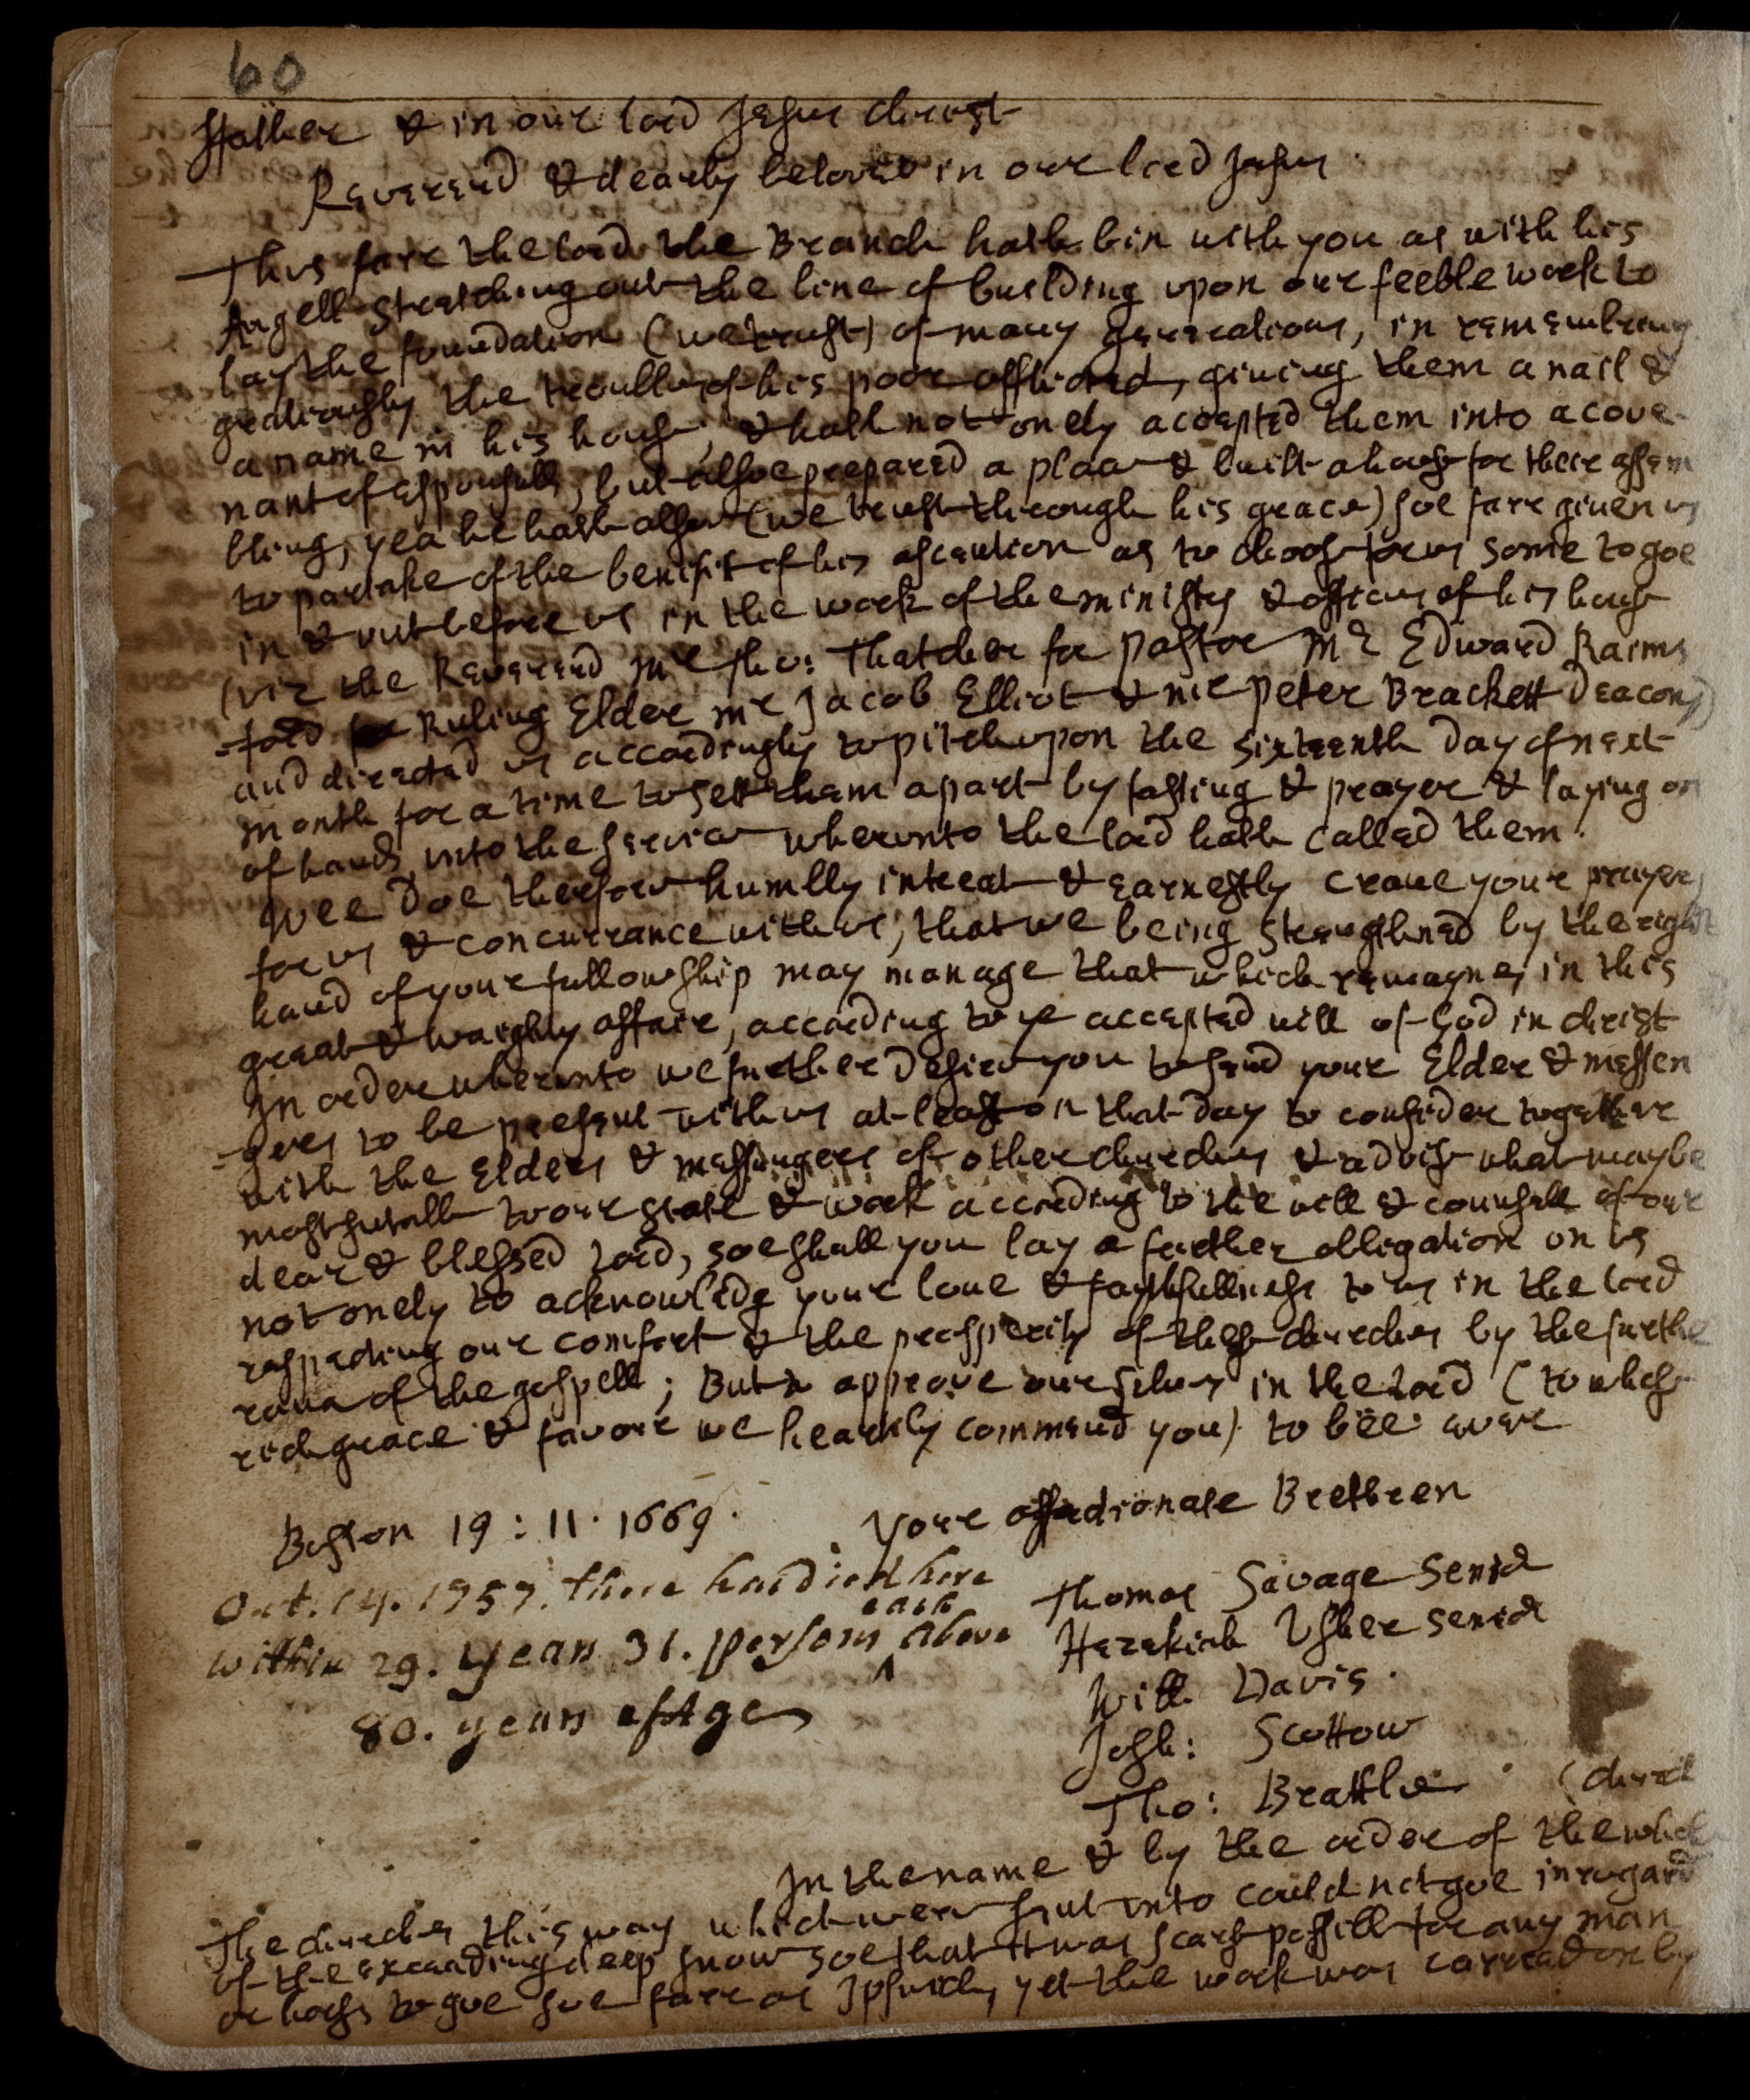 60
ffather & in our lord Jesus christ
Reverend & dearly beloved in our lord Jesus
Thus farr the lord the Branch hath bin with you as with his
Angell stretching out the line of building upon our feeble work to
lay the foundation (we trust) of many generations, in remembring
gratiously the troubles of his poor afflicted, giving them a nail &
a name in his house, & hath not onely accepted them into a cove-
nant of espousalls, but alsoe prepared a place & built a house for their assem
bling, yea he hath alsoe (we trust through his grace) soe farr given us
to partake of the benifit of his ascention as to choose for us some to goe
in & out before us in the work of the ministry & offices of his house
(viz the Reverend mr Tho: Thatcher for pastor Mr Edward Rains
-ford for Ruling Elder mr Jacob Elliot & mr Peter Brackett Deacons)
and directed us accordingly to pitch upon the sixteenth day of next
month for a time to sett them apart by fasting & prayer & laying on
of hands unto the service wherunto the lord hath called them.
Wee Doe therfore humbly intreat & earnestly crave your prayers
for us & concurrance with us, that we being strengthned by the right
hand of your fellowship may manage that which remaynes in this
great & waighty affair, according to ye accepted will of God in christ
In order wherunto we further Desire you to send your Elder & messen
-gers to be present with us at least on that day to consider together
with the Elders & messengers of other churches & advise what may be
most sutable to our state & work according to the will & counsell of our
dear & blessed Lord, soe shall you lay a further obligation on us
not onely to acknowledg your love & faythfullness to us in the lord
respecting our comfort & the prosperity of these churches by the furthe
rance of the gospell; But to approve our selves in the Lord (to whose
rich grace & favour we heartily commend you) to bee ever
Boston 19 : 11 . 1669 .
Your affectionate Brethren
Oct. 14. 1757. there had died here
within 29. years 31. persons each above
80. years of Age
Thomas Savage Senior
Hezekiah Usher senior
Will Davis .
Josh: Scottow
Tho: Brattle
(church
In the name & by the order of the whole
The churches this way which were sent unto could not goe in regard
of the exceeding deep snow soe that it was scarse possible for any man
or horse to goe soe farr as Ipswich, yet the work was carried on by